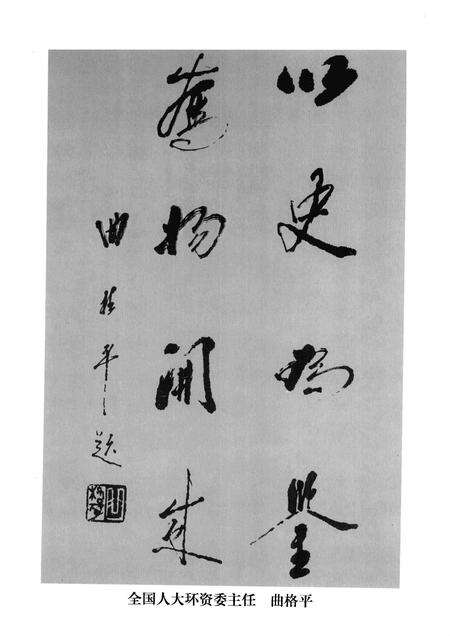 以史为鉴
物開来
曲格平题
全国人大环资委主任 曲格平